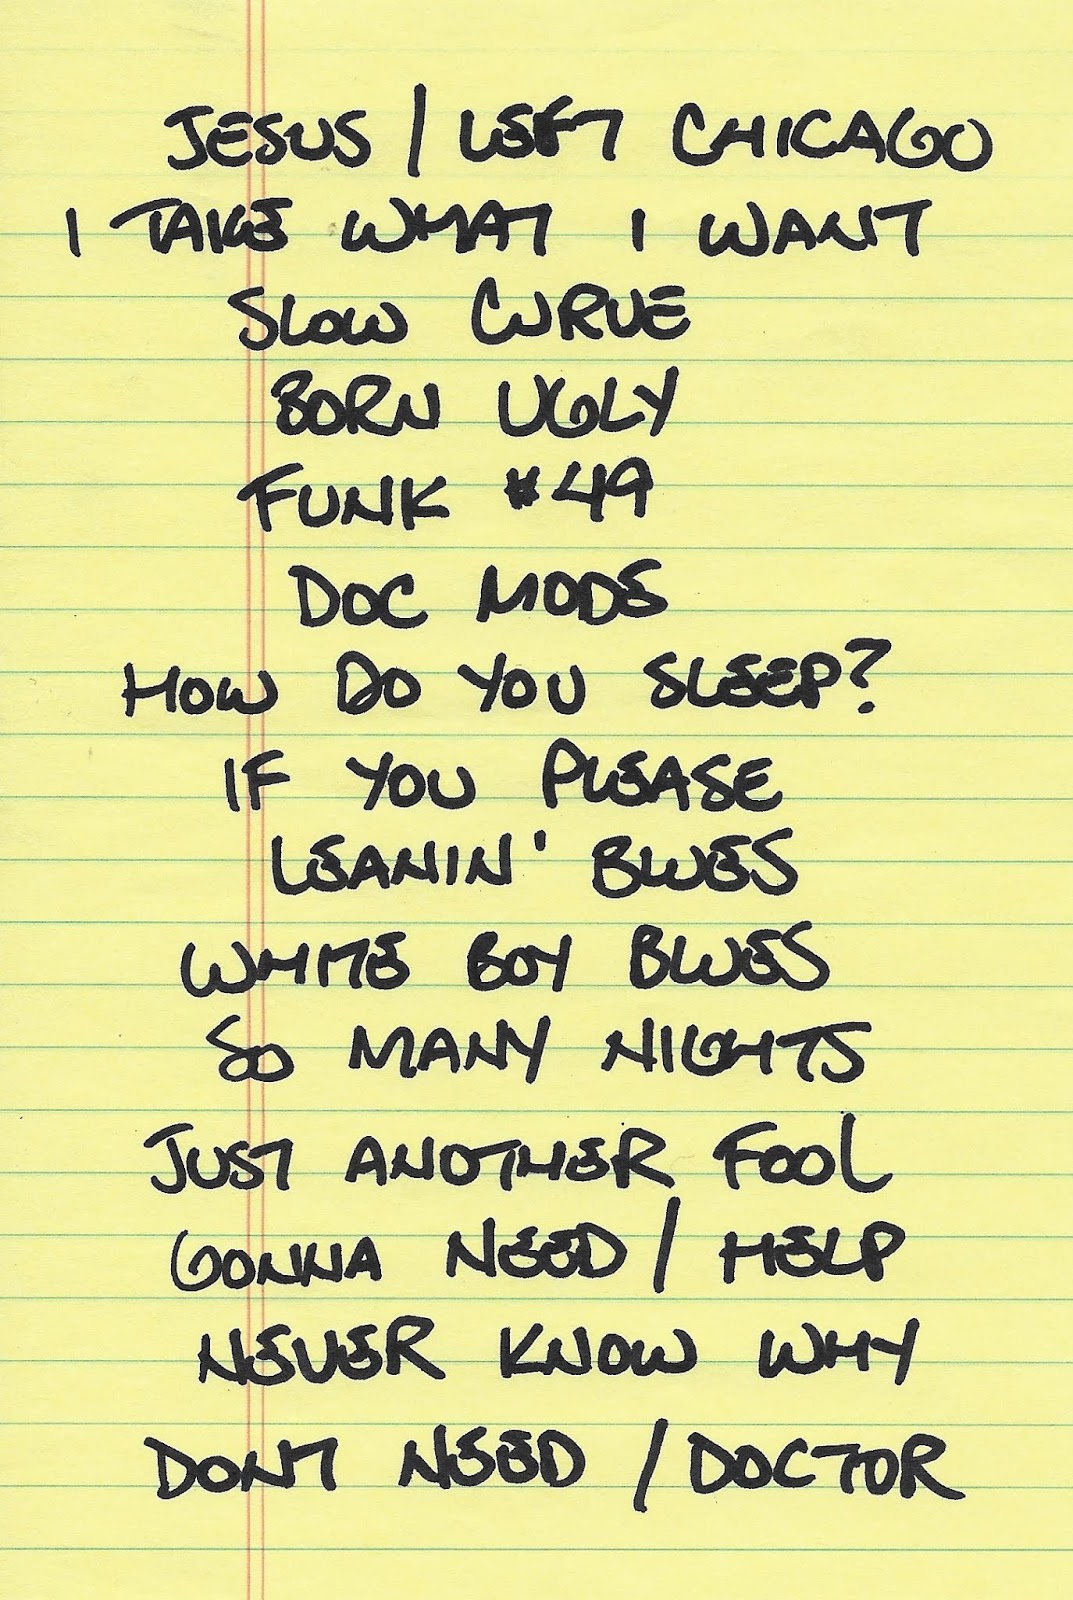 JESUS / LEFT CHICAGO
I TAKE WHAT I WANT
SLOW CURVE
BORN UGLY
FUNK #49
DOC MODE
HOW DO YOU SLEEP?
IF YOU PLEASE
LEANIN' BLUES
WHITE BOY BLUES
SO MANY NIGHTS
JUST ANOTHER FOOL
GONNA NEED / HELP
NEVER KNOW WHY
DONT NEED / DOCTOR